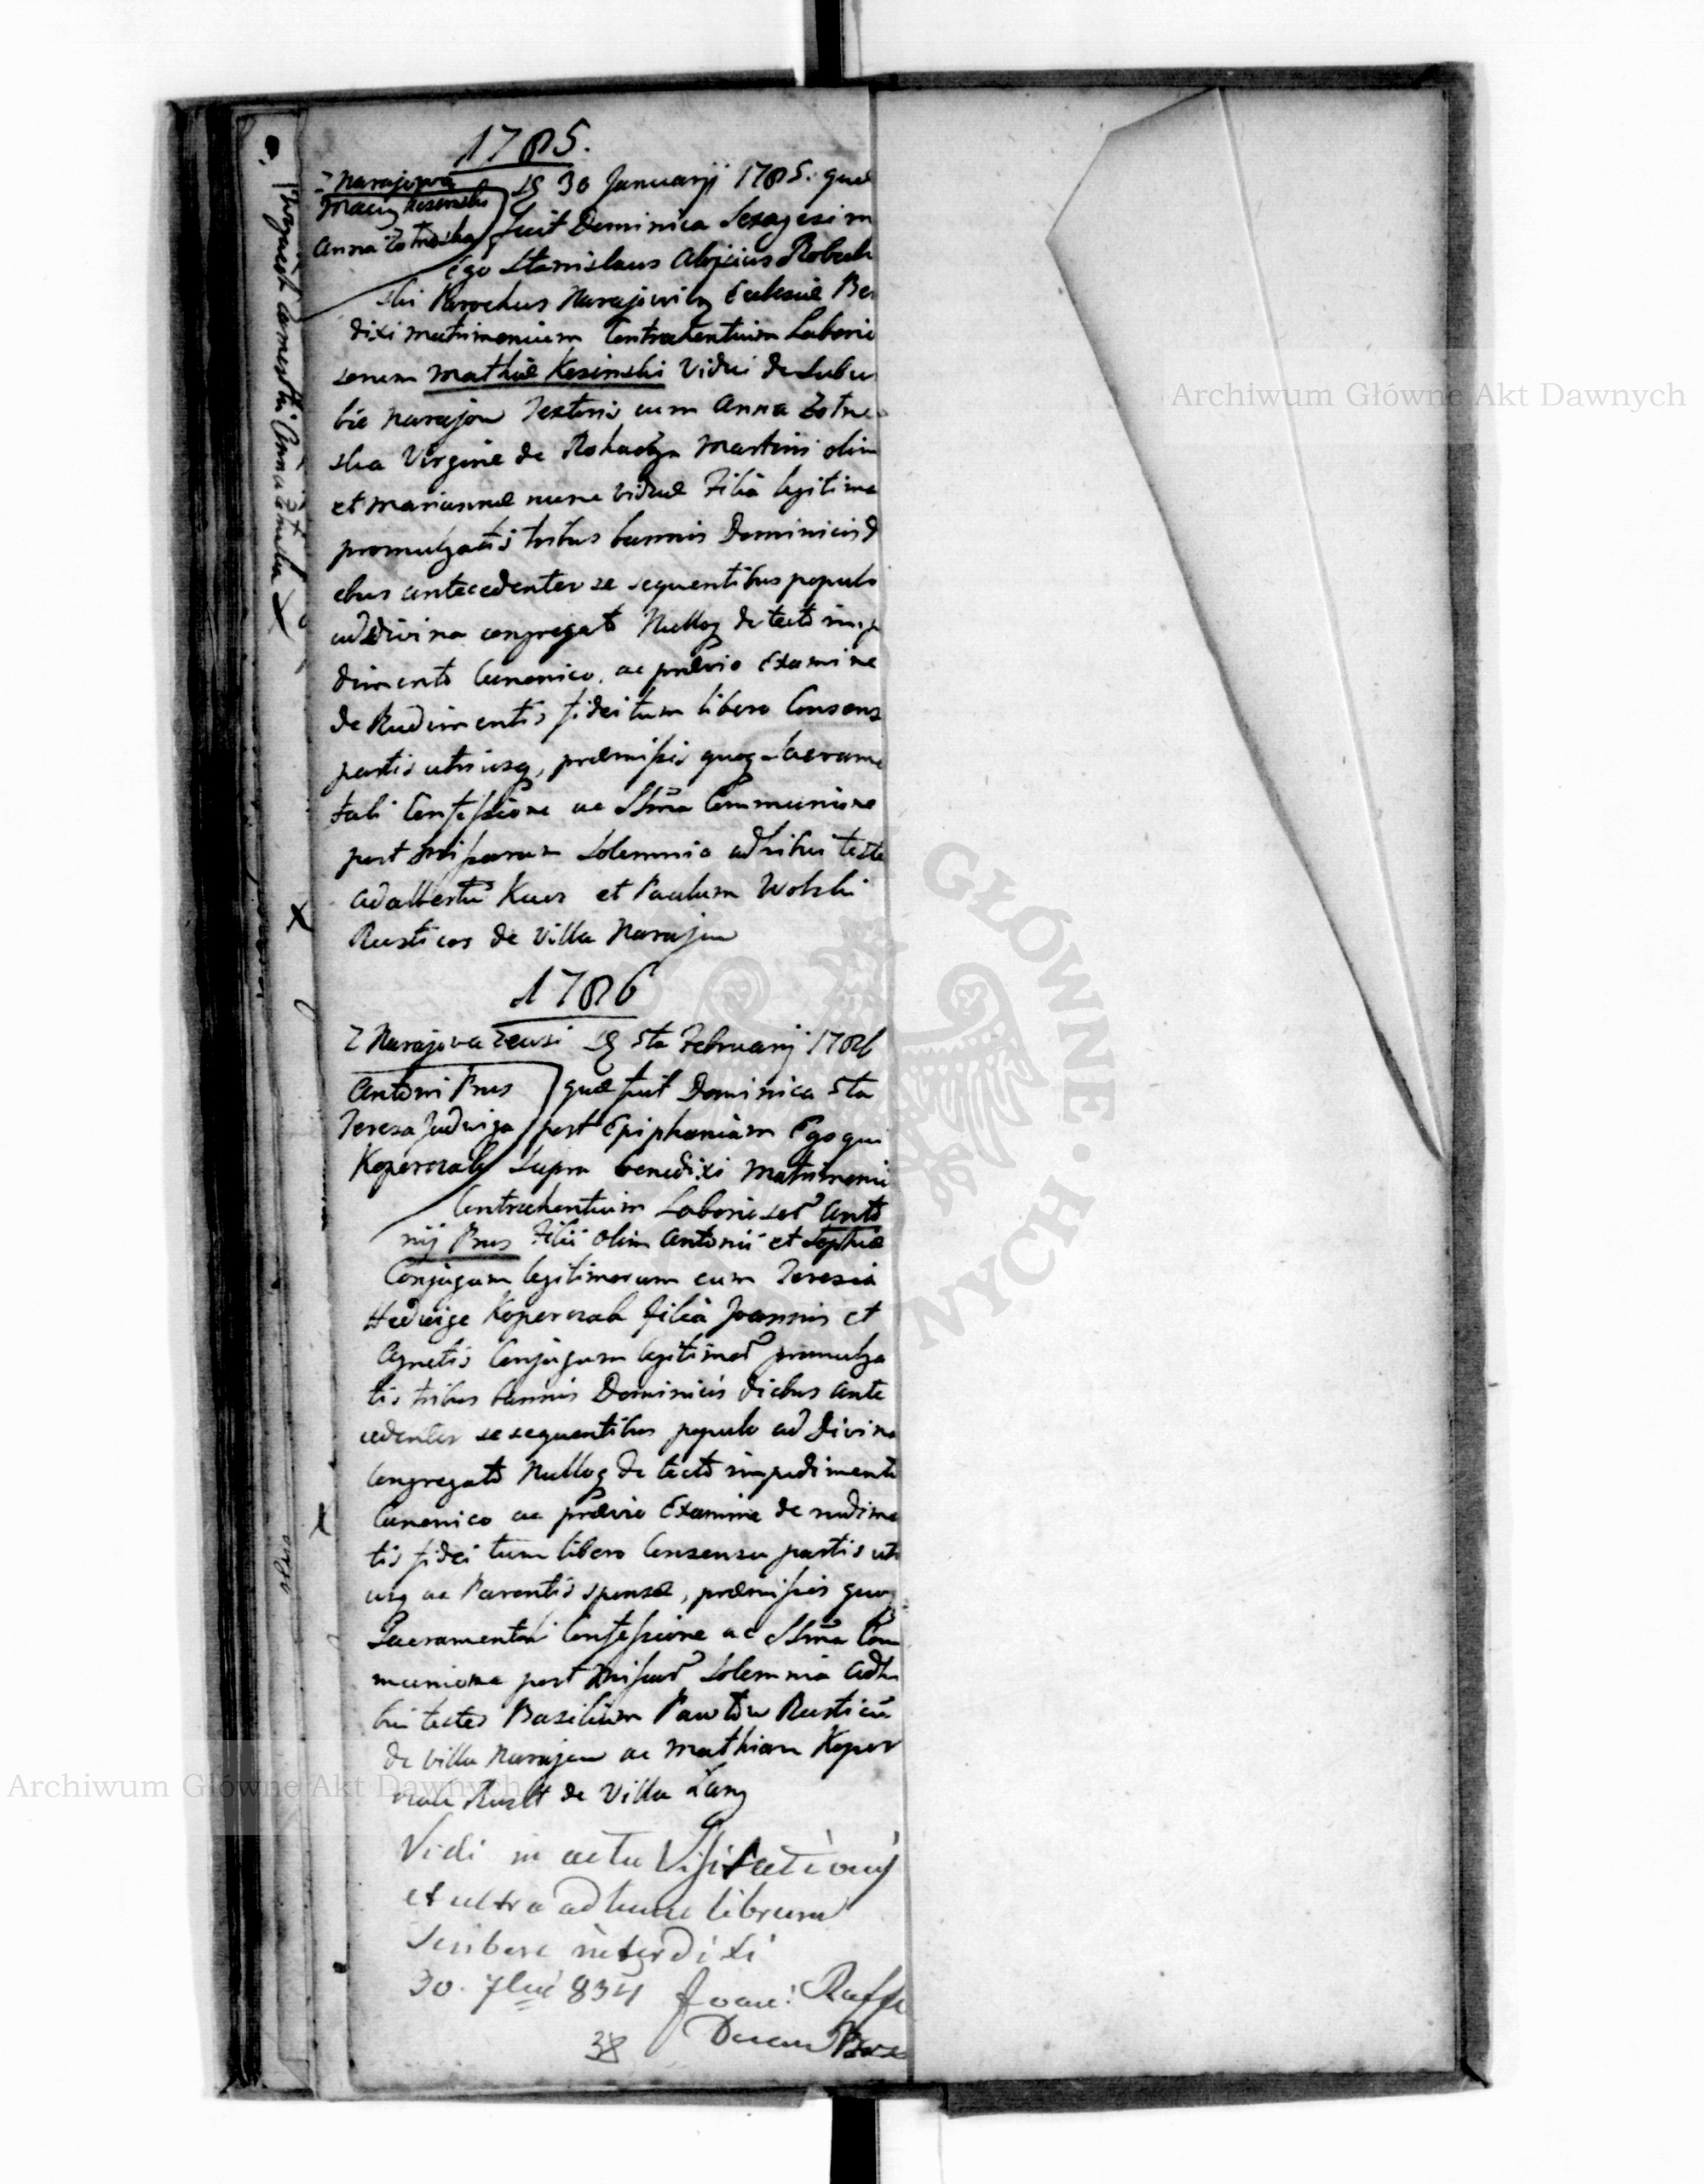 1785.
z Narajowa
Maciy Kesinski
Anna Żotnoska
Die 30 Januarij 1785. quæ
fuit Dominica Sexagesim
Ego Stanislaus Aloÿsius Roback
ski Parochus Narajovien Ecclesiæ Be
dixi matrimonium Contrahentium Laborio
sorum Mathiæ Kesinski Vidui de Subu
bio Narajow Textoris cum Anna
ska Virgine de Rohatyn Martini olim
et Mariannæ nunc viduæ Filia legitima
promulgatis tribus bannis Dominicis d
ebus antecedenter se sequentibus populo
ad divina congregato Nulloq detecto impe
dimento Canonico, ac prævio Examine
de Rudimentis fidei tum libero Consens
partis utriusq, præmissis quoq Sacrame
tali Confessione ac SSma Communione
post Missarum Solemnia adhibui teste
Adalbertū Kucz et Paulum Wolski
Rusticos de Villa Narajow
1786
z Narajowa ze wsi
Antoni Prus
Teresa Jadwiga
Koperczak
Die 5ta Februarij 1786
quæ fuit Dominica 5ta
post Epiphaniam Ego qui
Supra benedixi Matrimoni
Contrahentium Laboriosor Anto
nij Prus Filii olim Antonii et Sophiæ
Conjugum legitimorum cum Teresia
Hedwige Koperczak filia Joannis et
Agnetis Conjugum legitimor promulga
tis tribus bannis Dominicis diebus ante
cedenter se sequentibus populo ad Divina
Congregato Nulloq detecto impedimento
Canonico ac prævio Examine de rudime
tis fidei tum libero Consensu partis utri
usq ac Parentis sponsæ, præmissis quoq
Sacramentali Confessione ac SSma Com
munione post Missar Solemnia adhi
bui testes Basilium Pawlow Rusticū
de villa Narajow ac Mathiam Koper
czak Rust de Villa Lany
Vidi in actu Visitationis
et ultra ad hunc librum
scribere interdixi
30. 7bris 834 Joan:
38
Archiwum Główne Akt Dawnych
Archiwum Główne Akt Dawnych